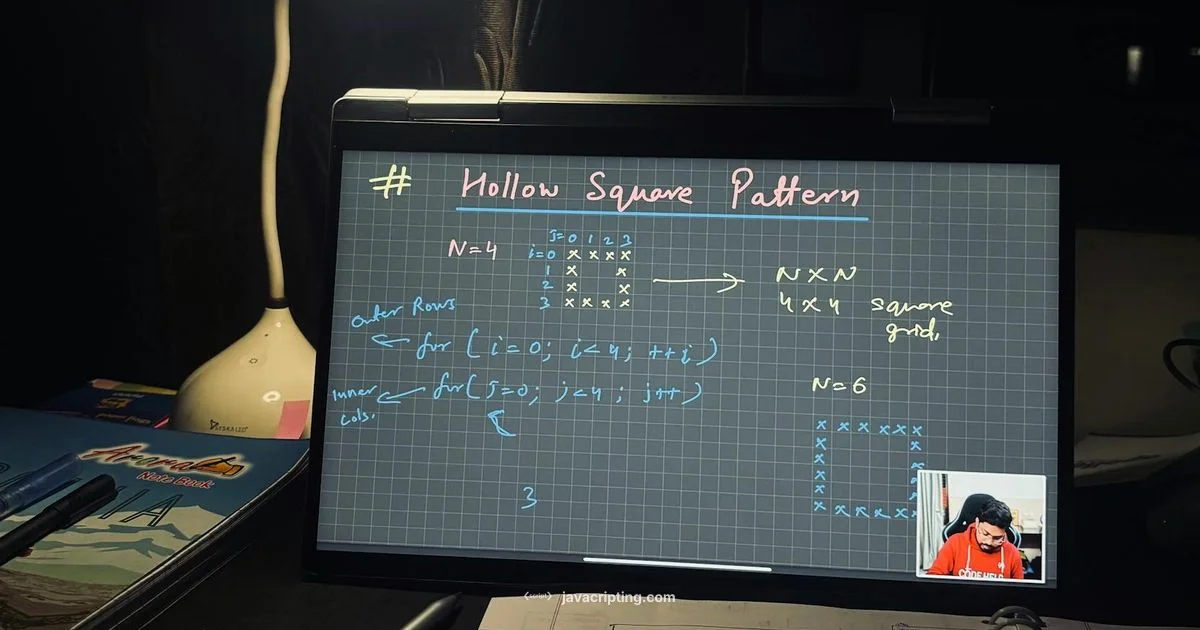 # Hollow Square Pattern
N=4
J=0 1 2 3
i=0 x x x x
1 x x
2 x x
3 x x x x
N x N
4 x 4 square
grid.
outer Rows
for ( i=0; i<4; ++i )
Inner
cols.
for( J=0; j<4 ; j++ )
{
3
N=6
x x x x x x
x x
x x
x x
x x
x x x x x x
CODE HELP
Aroma
Note Book
javacripting.com